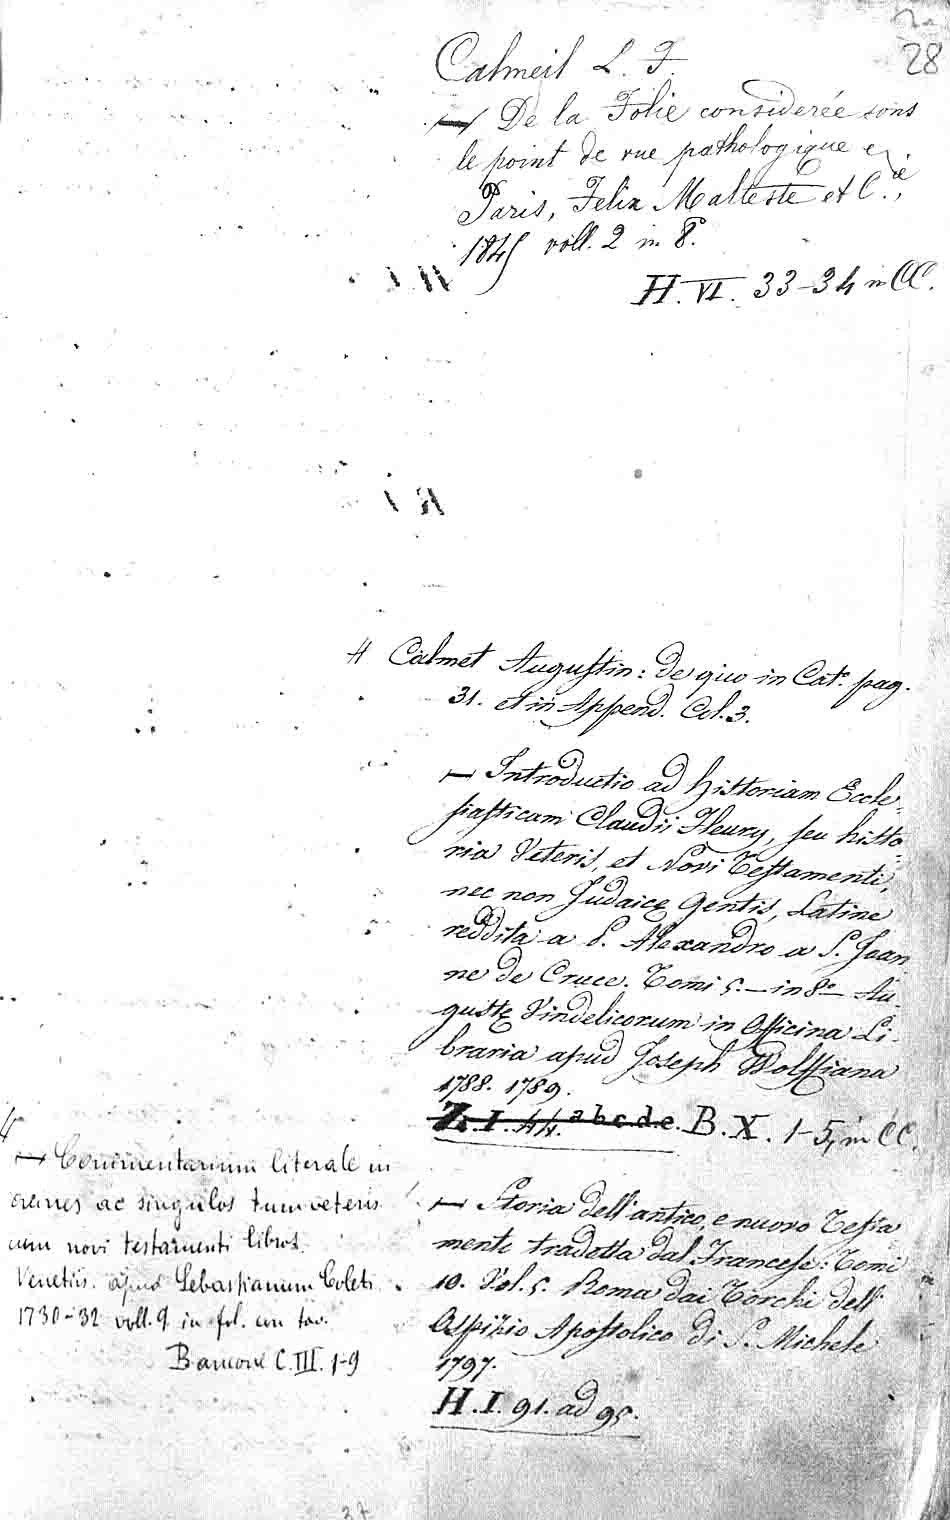 28
Calmeil L. F.
— De la Folie considerée sous
le point de vue pathologique e
Paris, Felix Malteste et C.ie,
1845 voll. 2 in 8.
H. VI. 33-34 in CC.
Calmet Augustin: de quo in Cat.º pag.
31. et in Append. Col. 3.
— Introductio ad historiam Eccle-
siasticam Claudii Fleury, seu histo-
ria Veteris, et Novi Testamenti,
nec non Judaicę Gentis, Latine
reddita a P. Alexandro a S. Joan
ne de Cruce. Tomi 5. — in 8.º — Au-
gustę Vindelicorum in Officina Li-
braria apud Joseph Wolffiana
1788. 1789.
Z. I. 44. a b c d e. B. X. 1-5, in CC.
— Storia dell'antico, e nuovo Testa
mento tradotta dal Francese: Tomi
10. Vol. 5. Roma dai Torchi dell'
Ospizio Apostolico di S. Michele
1797.
H. I. 91. ad 95.
— Commentarium literale in
omnes ac singulos tum veteris
cum novi testamenti libros.
Venetiis. apud Sebastianum Coleti
1730-32 voll. 9 in fol. con tav.
Bancone C. III. 1-9
37